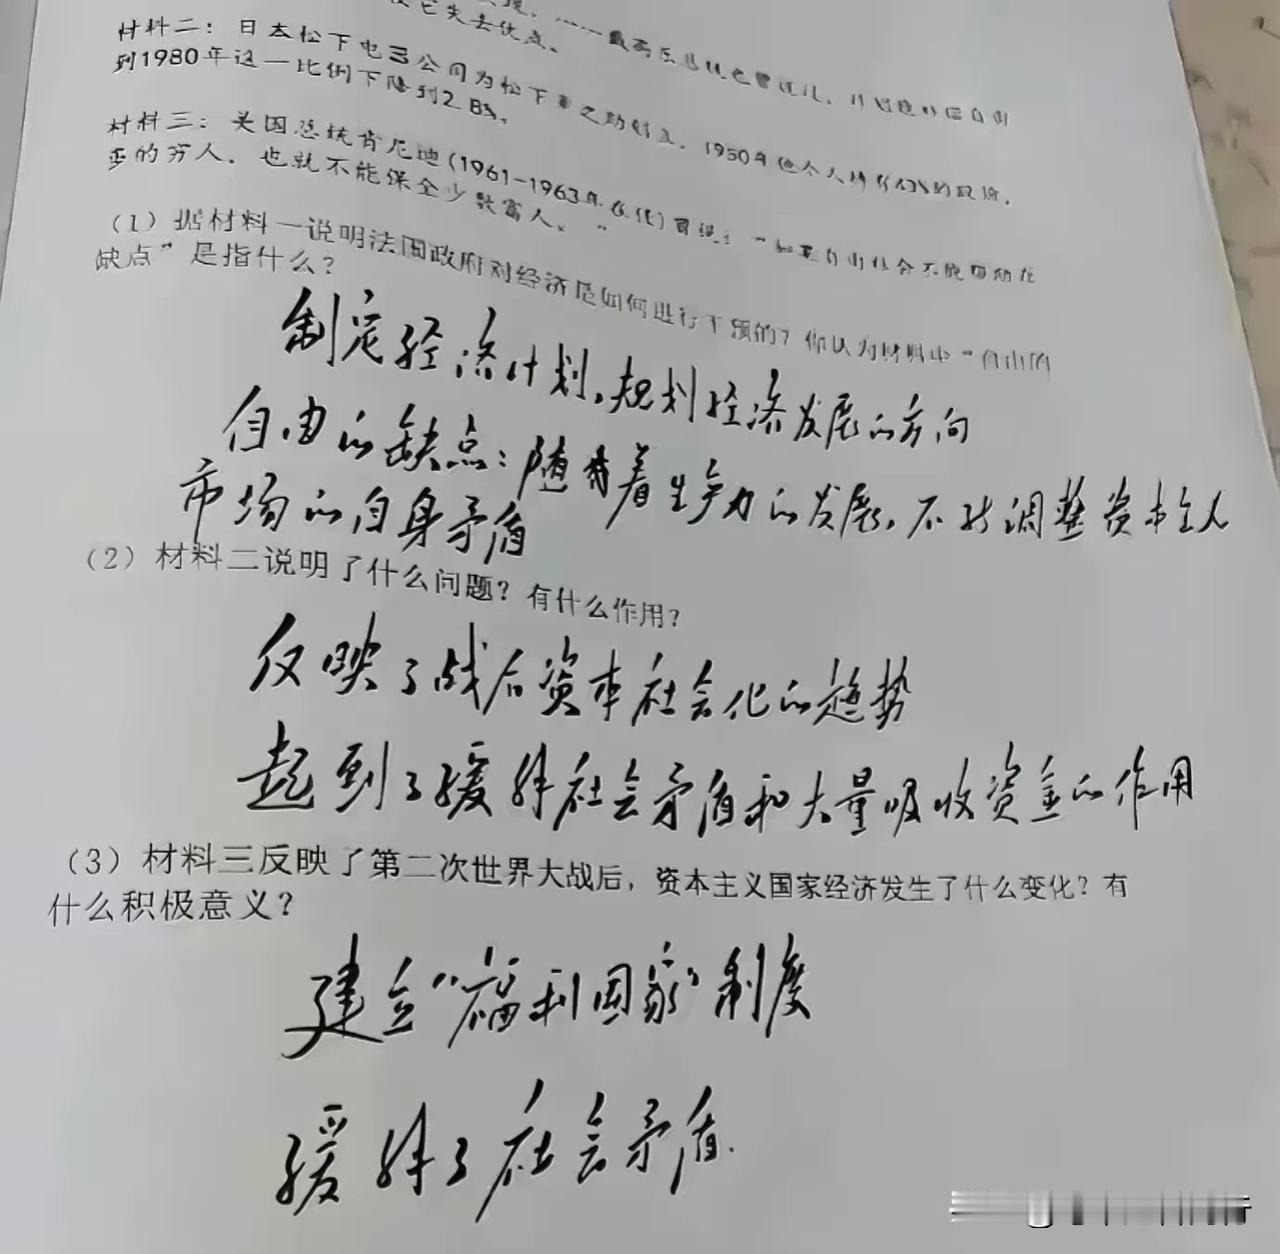 它失去优点。
材料二：日本松下电器公司为松下幸之助创立，1950年他个人持有43%的股份，
到1980年这一比例下降到2.8%。
材料三：美国总统肯尼迪(1961-1963年在任)曾说：“如果自由社会不能帮助众
多的穷人，也就不能保全少数富人。”
（1）据材料一说明法国政府对经济是如何进行干预的？你认为材料中“自由的
缺点”是指什么？
制定经济计划，规划经济发展的方向
自由的缺点：随着生产力的发展，不能调整资本主义
市场的自身矛盾
（2）材料二说明了什么问题？有什么作用？
反映了战后资本社会化的趋势
起到了缓解社会矛盾和大量吸收资金的作用
（3）材料三反映了第二次世界大战后，资本主义国家经济发生了什么变化？有
什么积极意义？
建立“福利国家”制度
缓解了社会矛盾.